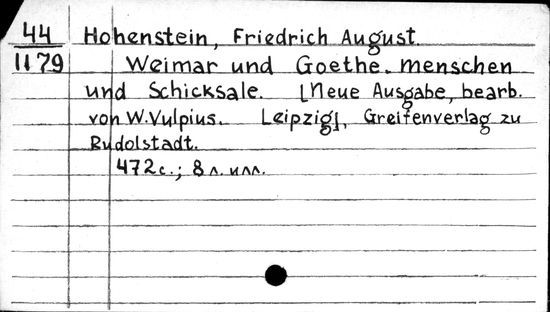 44 Hohenstein, Friedrich August.
1179 Weimar und Goethe. Menschen
und Schicksale. [Neue Ausgabe, bearb.
von W. Vulpius. Leipzig], Greifenverlag zu
Rudolstadt.
472 с.; 8 л. илл.